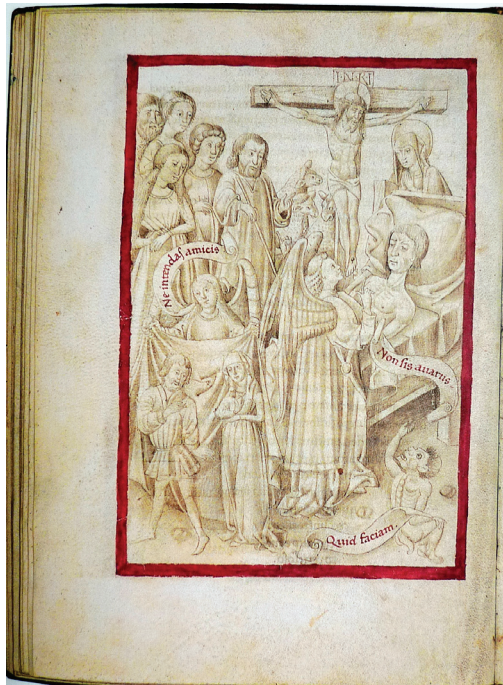 I·N·R·I
Ne intendas amicis
Non sis avarus.
Quid faciam.